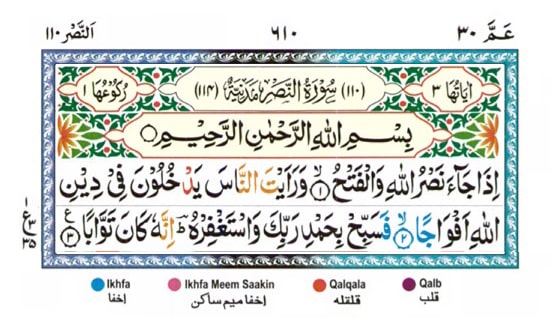 اَلنَّصْر ١١٠ ٦١٠ عَـمَّ ٣٠
اٰيَاتُهَا ٣ (١١٠) سُوْرَةُ النَّصْرِ مَدَنِيَّةٌ (١١٤) رُكُوْعُهَا ١
بِسْمِ اللهِ الرَّحْمٰنِ الرَّحِيْمِ
اِذَا جَآءَ نَصْرُ اللهِ وَالْفَتْحُ ۙ﴿١﴾ وَرَاَيْتَ النَّاسَ يَدْخُلُوْنَ فِىْ دِيْنِ
اللهِ اَفْوَاجًا ۙ﴿٢﴾ فَسَبِّحْ بِحَمْدِ رَبِّكَ وَاسْتَغْفِرْهُ ؕ اِنَّهٗ كَانَ تَوَّابًا ﴿٣﴾ ع
Ikhfa Ikhfa Meem Saakin Qalqala Qalb
اخفا اخفا میم ساکن قلقلہ قلب